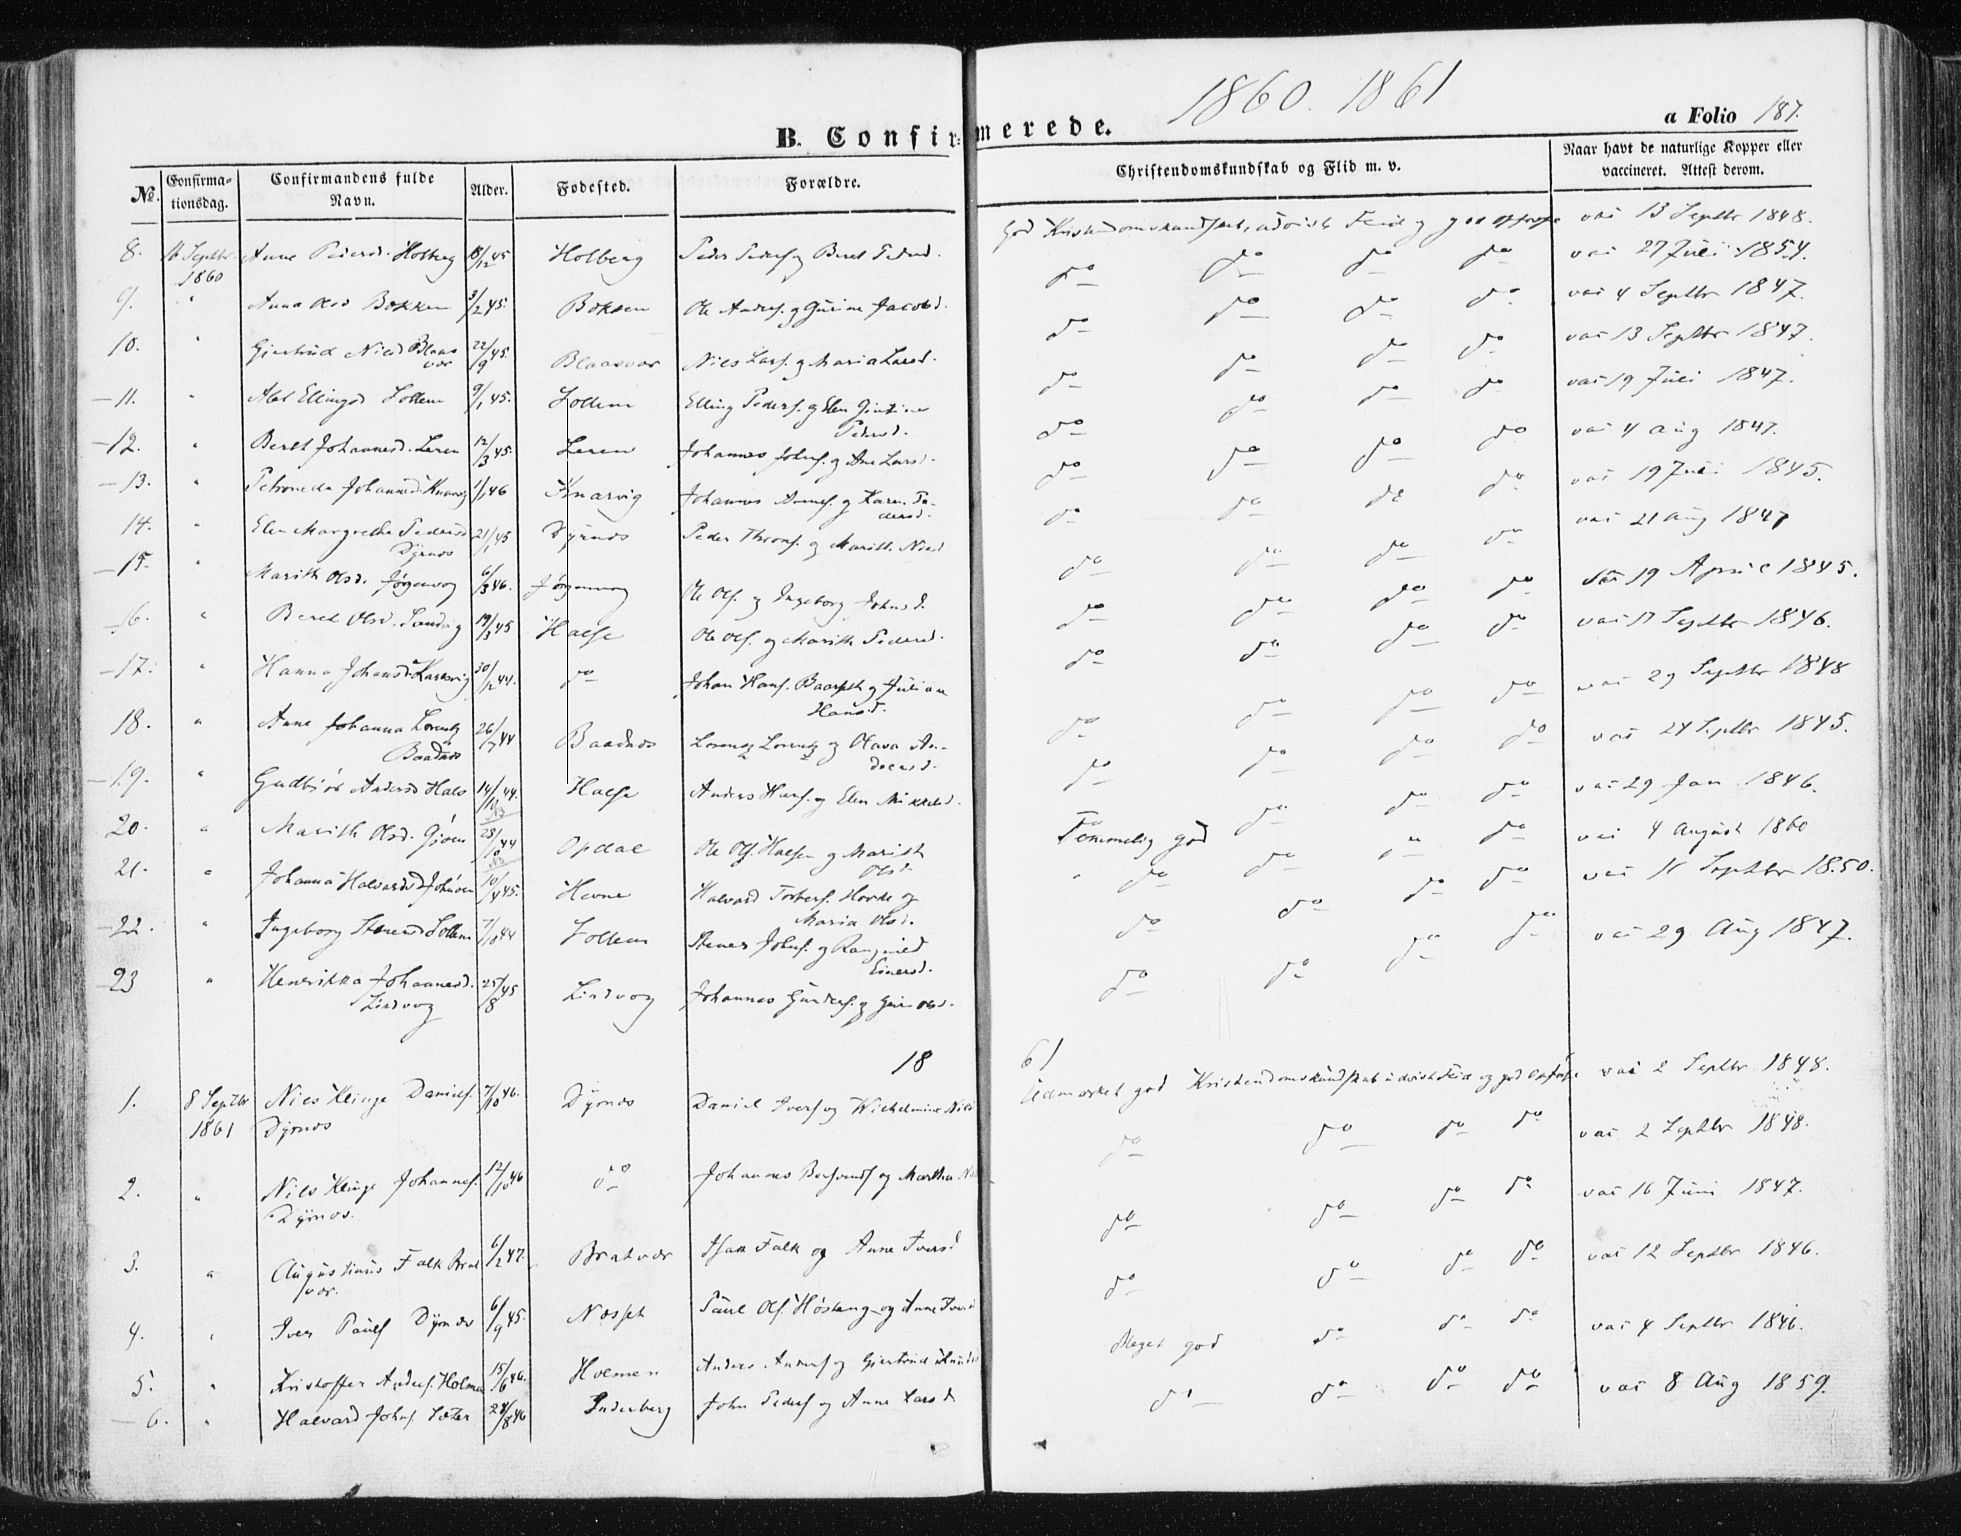 1860. 1861
B. Confirmerede.
a Folio 187.
No. Confirmationsdag. Confirmandens fulde Navn. Alder. Fødested. Forældre. Christendomskundskab og Flid m. v. Naar havt de naturlige Kopper eller vaccineret. Attest derom.
8. 16 Septbr 1860 Anne Pedersd. Holberg 18/12 45 Holberg Peder Peders. og Beret Pedersd. God Kristendomskundskab, udvist Flid og god Opførsel vac 13 Septbr 1848.
9. " Anna Olsd Bokken 3/2 45. Bokken Ole Anders. og Gurine Jacobd. do do do do vac 27 Juli 1854.
10. " Giertrud Nilsd Blaasvær 22/9 45. Blaasvær Nils Lars. og Maria Larsd. do do do do vac 4 Septbr 1847.
11. " Abel Ellingsd Sollem 9/1 45. Sollem Elling Peders. og Elen Pedersd. do do do do vac 13 Septbr 1847.
12. " Beret Johannesd. Leren 12/3 45. Leren Johannes Johns. og Ane Larsd. do do do do vac 19 Juli 1847.
13. " Johannesd. Knarvig 1/1 46 Knarvig Johannes og Karen Pedersd. do do do do vac 4 Aug 1847.
14. " Elen Margrethe Pedersd Dyrnes 21/1 45 Dyrnes Peder Throns. og Marith Nilsd do do do do vac 19 Juli 1845.
15. " Marith Olsd. Jørgenvog 6/3 46. Jørgenvog Ole Ols. og Ingeborg Johnsd. do do do do vac 21 Aug 1847
16. " Beret Olsd. Sandvig 19/3 45 Halse Ole Ols. og Marith Pedersd. do do do do vac 19 April 1845.
17. " Hanna Johansd. 30/12 44. do Johan Hans. og Juliane Hansd. do do do do vac 17 Septbr 1846.
18. " Anne Johanna Lorentz Baadnes 26/7 44 Baadnes Lorentz Lorentz og Olava Andersd. do do do do vac 29 Septbr 1848
19. " Gudbiør Andersd Hals 14/10 44. Halse Anders Hans. og Elen Mikkelsd. do do do do vac 24 Septbr 1845.
20. " Marith Olsd. Gjøen 28/10 44 Opdal Ole Ols. Halsen og Marith Olsd. Temmelig god do do do vac 29 Jan 1846.
21. " Johanna Halvardsd 10/4 45. Hevne Halvard og Maria Olsd. do do do vac 4 August 1860
22. " Ingeborg Stenersd Sollem 7/10 44 Sollem Stener Johns. og Rangnild Einersd. do do do do vac 11 Septbr 1850.
23 " Henrikka Johannesd. Lindvog 25/8 45 Lindvog Johannes Gunders. og Guri Olsd. do do do do vac 29 Aug 1847.
18 61
1. 8 Septbr 1861 Nils Klinge Daniels. Dyrnes 7/10 46. Dyrnes Daniel Ivers og Wilhelmine Nilsd Udmærket god Kristendomskundskab udvist Flid og god Opførsel vac 2 Septbr 1848.
2. " Nils Klinge Johannes. Dyrnes. 12/10 46 do Johannes og Martha do do do do vac 2 Septbr 1848.
3. " Augustinus Falk Bratvær. 6/2 47. Bratvær Isak Falk og Anne Iversd do do do do vac 16 Juni 1847.
4. " Iver Pauls Dyrnes 6/9 45. Næsset Paul Ols. og Anne Iversd do do do do vac 12 Septbr 1846.
5. " Kristoffer Anders. Holmen 15/6 46. Holmen Anders Anders og Giertrud Knudsd Meget god do do do vac 4 Septbr 1846.
6. " Halvard Johns Sæter 28/8 46 Inderberg John Peders og Anne Larsd do do do do vac 8 Aug 1859.